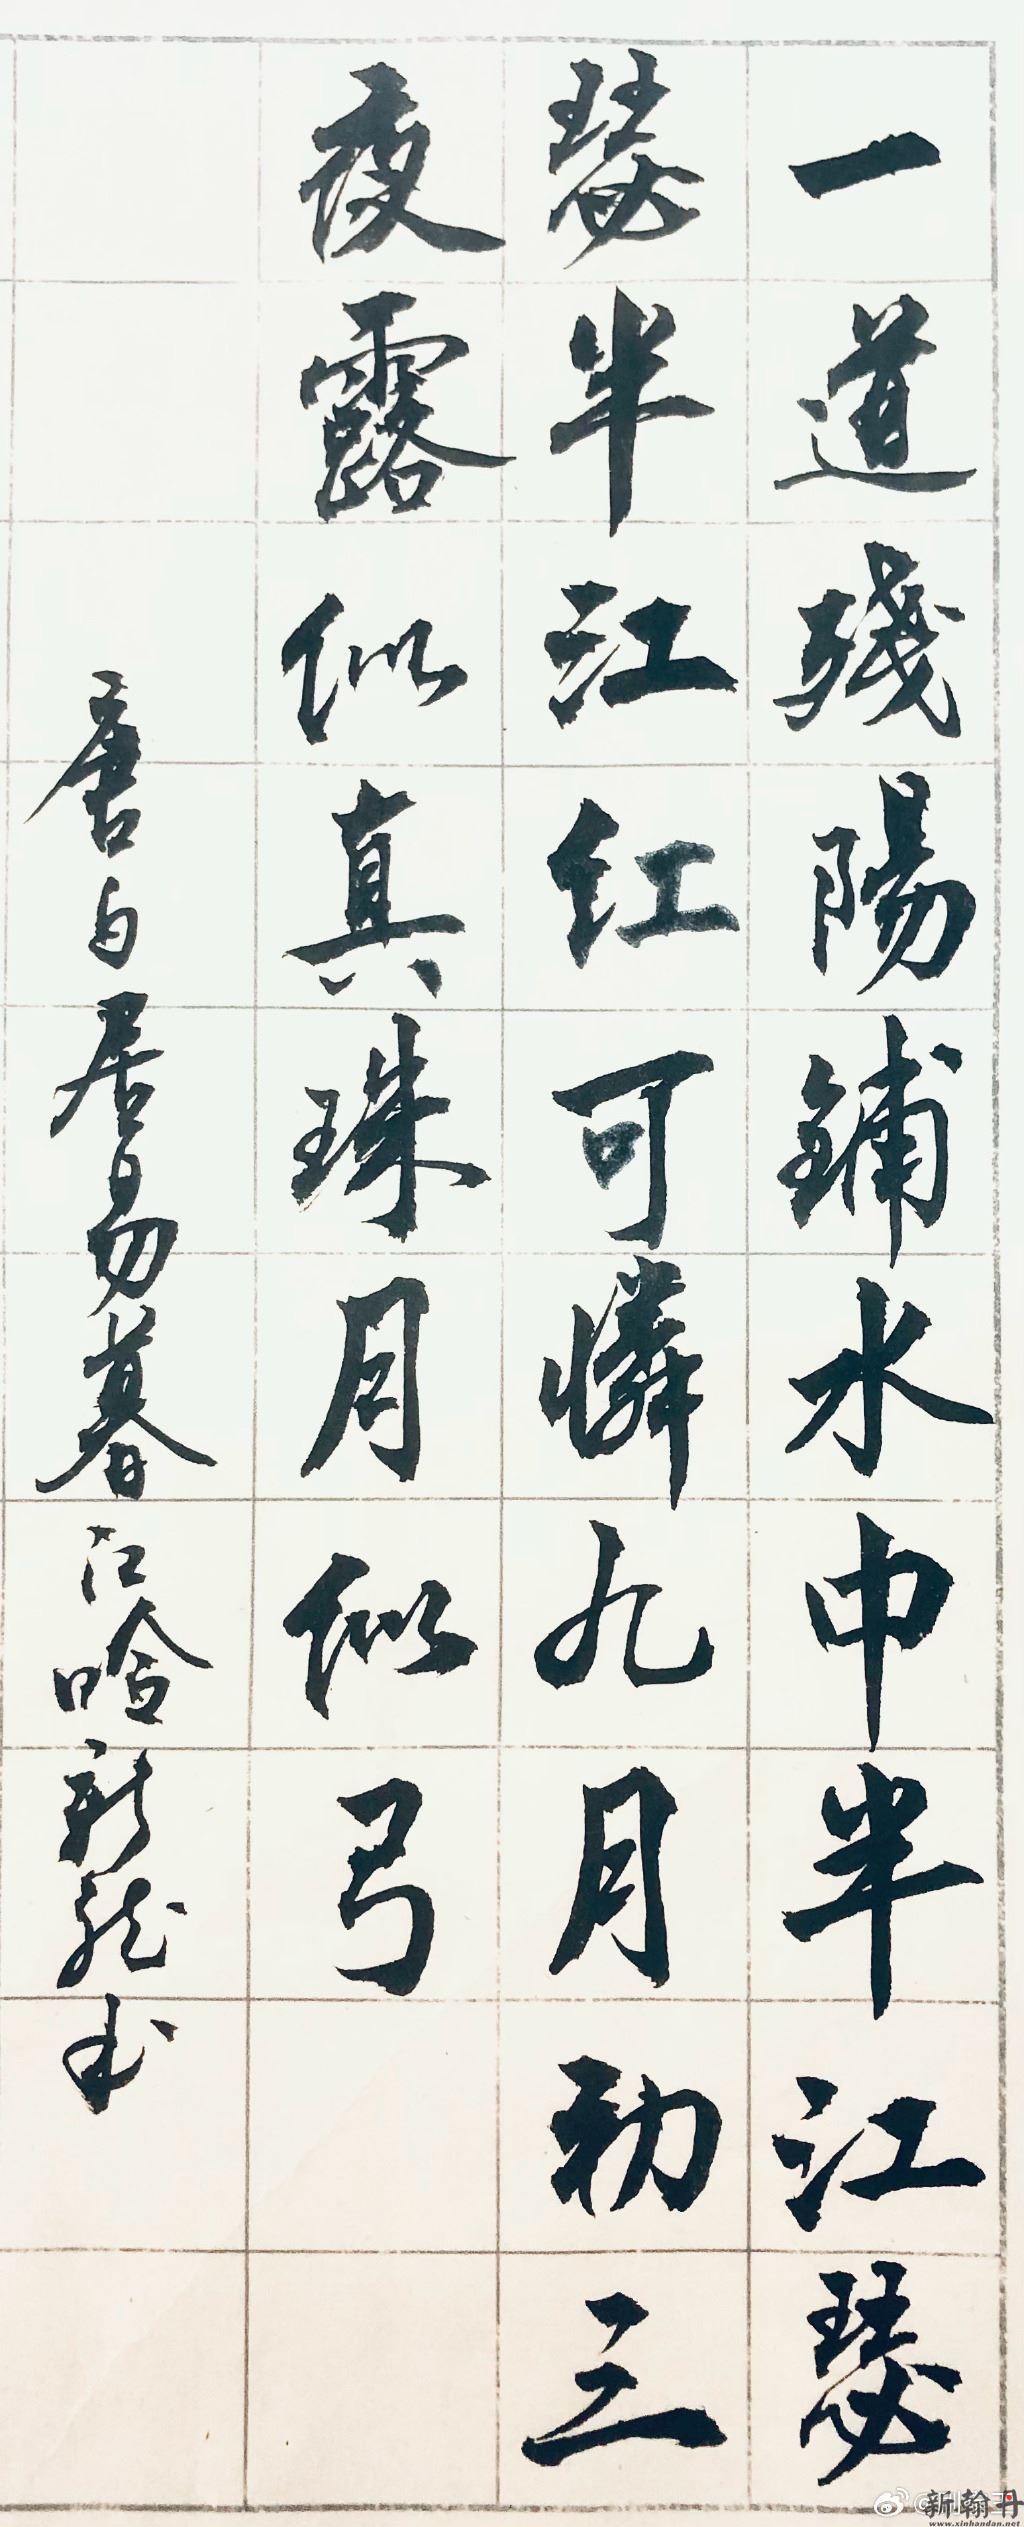 一道殘陽鋪水中半江瑟
瑟半江红可憐九月初三
夜露似真珠月似弓
唐白居易暮江吟新龍书
新翰丹
www.xinhandan.net